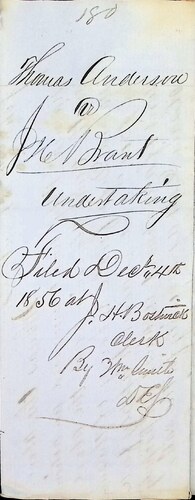 180
Thomas Anderson
vs
J H Brant
Undertaking
Filed Dec 4th
1856 at
J. H Bostwick
Clerk
By Wm Smith
D C